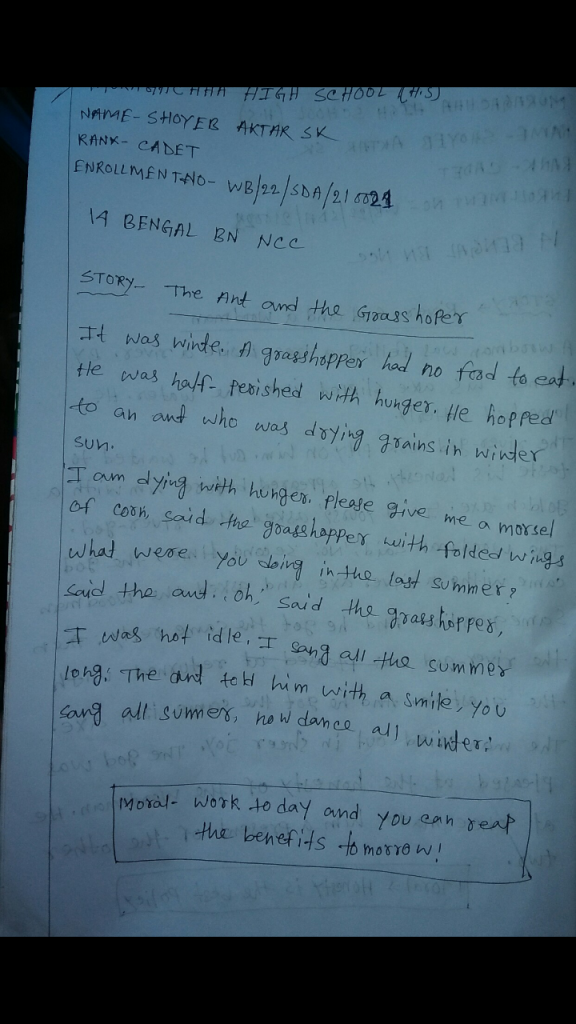 MURAGACHHA HIGH SCHOOL (H.S)
NAME- SHOYEB AKTAR SK
RANK- CADET
ENROLLMENT-NO- WB/22/SDA/210021
14 BENGAL BN NCC
STORY- The Ant and the Grasshoper
It was winte. A grasshopper had no food to eat.
He was half- perished with hunger. He hopped
to an ant who was drying grains in winter
sun.
I am dying with hunger. Please give me a morsel
of corn, said the grasshopper with folded wings
what were you doing in the last summer?
said the ant. oh, said the grasshopper,
I was not idle. I sang all the summer
long. The ant told him with a smile, you
sang all summer, now dance all winter.
Moral- work today and you can reap
the benefits tomorrow!